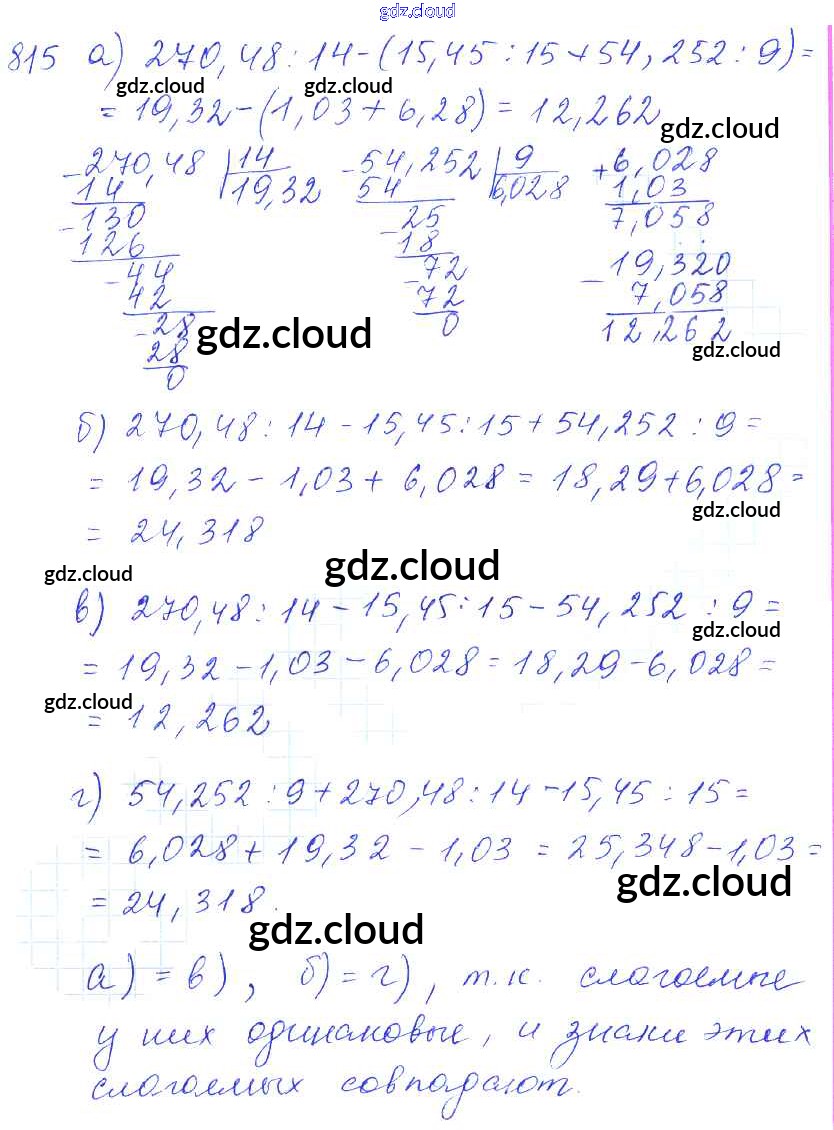 gdz.cloud
815 а) 270,48 : 14 - (15,45 : 15 + 54,252 : 9) =
gdz.cloud gdz.cloud
= 19,32 - (1,03 + 6,28) = 12,262
gdz.cloud
- 270,48 | 14 - 54,252 | 9 + 6,028
14 19,32 54 6,028 1,03
- 130 - 25 7,058
126 18
- 44 - 72 - 19,320
42 72 7,058
- 28 0 12,262
gdz.cloud
28 gdz.cloud
0
б) 270,48 : 14 - 15,45 : 15 + 54,252 : 9 =
= 19,32 - 1,03 + 6,028 = 18,29 + 6,028 =
gdz.cloud
= 24,318
gdz.cloud gdz.cloud
в) 270,48 : 14 - 15,45 : 15 - 54,252 : 9 =
gdz.cloud
= 19,32 - 1,03 - 6,028 = 18,29 - 6,028 =
gdz.cloud
= 12,262
г) 54,252 : 9 + 270,48 : 14 - 15,45 : 15 =
= 6,028 + 19,32 - 1,03 = 25,348 - 1,03 =
gdz.cloud
= 24,318.
gdz.cloud
а) = в), б) = г), т.к. слагаемые
у них одинаковые, и знаки этих
слагаемых совпадают.